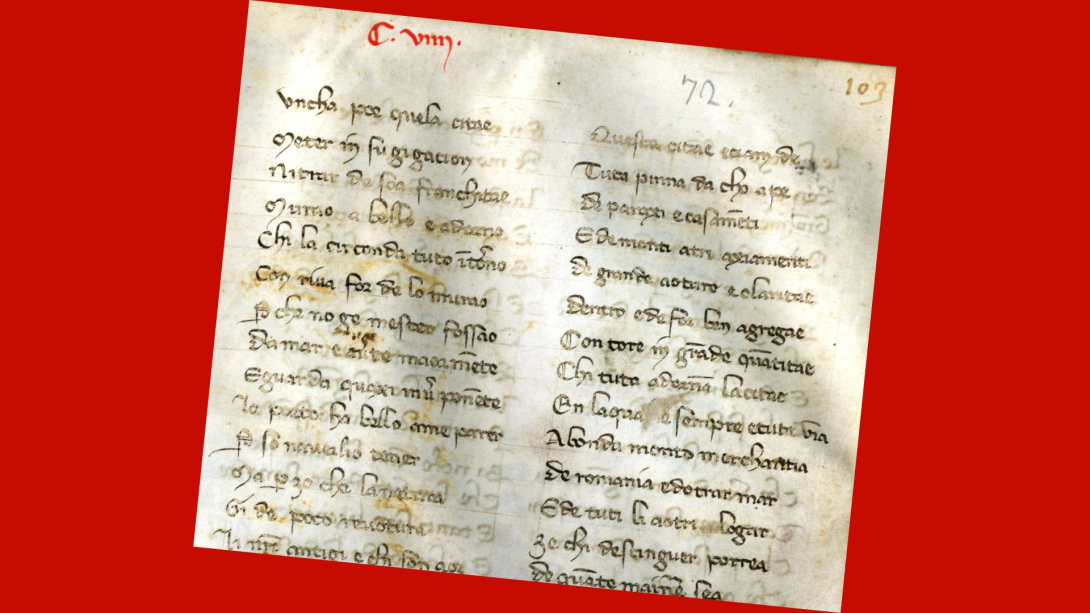 C. viiii.
72.
103
Uncha per quela citae
Meter in su gigacion
Ni trar de soa franchitae
Murao a bello e adorno
Chi la circonda tuto ītorno
Con riua for de lo murao
P che no ge mester fossao
Da mar e
E guarda quaxi inũ ponēte
Lo porto ha bello a me parer
P so nauilio tener
Ma p zo che la natura
Gi de poco
Li nr̄i antigi e chi son aor
Questa citae eciamde
Tuta pinna da cho a pe
de paraxi e casamēti
E de monti atri axiamenti
de grande aotura e claritae
dentro e de for ben agregae
Con tore in grāde quātitae
Chi tuta adorna la citae
En la qua e sempre e tuta via
Abonda monto merchantia
de romania e dotrar mar
E de tuti li aotri logar
Ze chi destinguer porrea
de quāte mainere sea